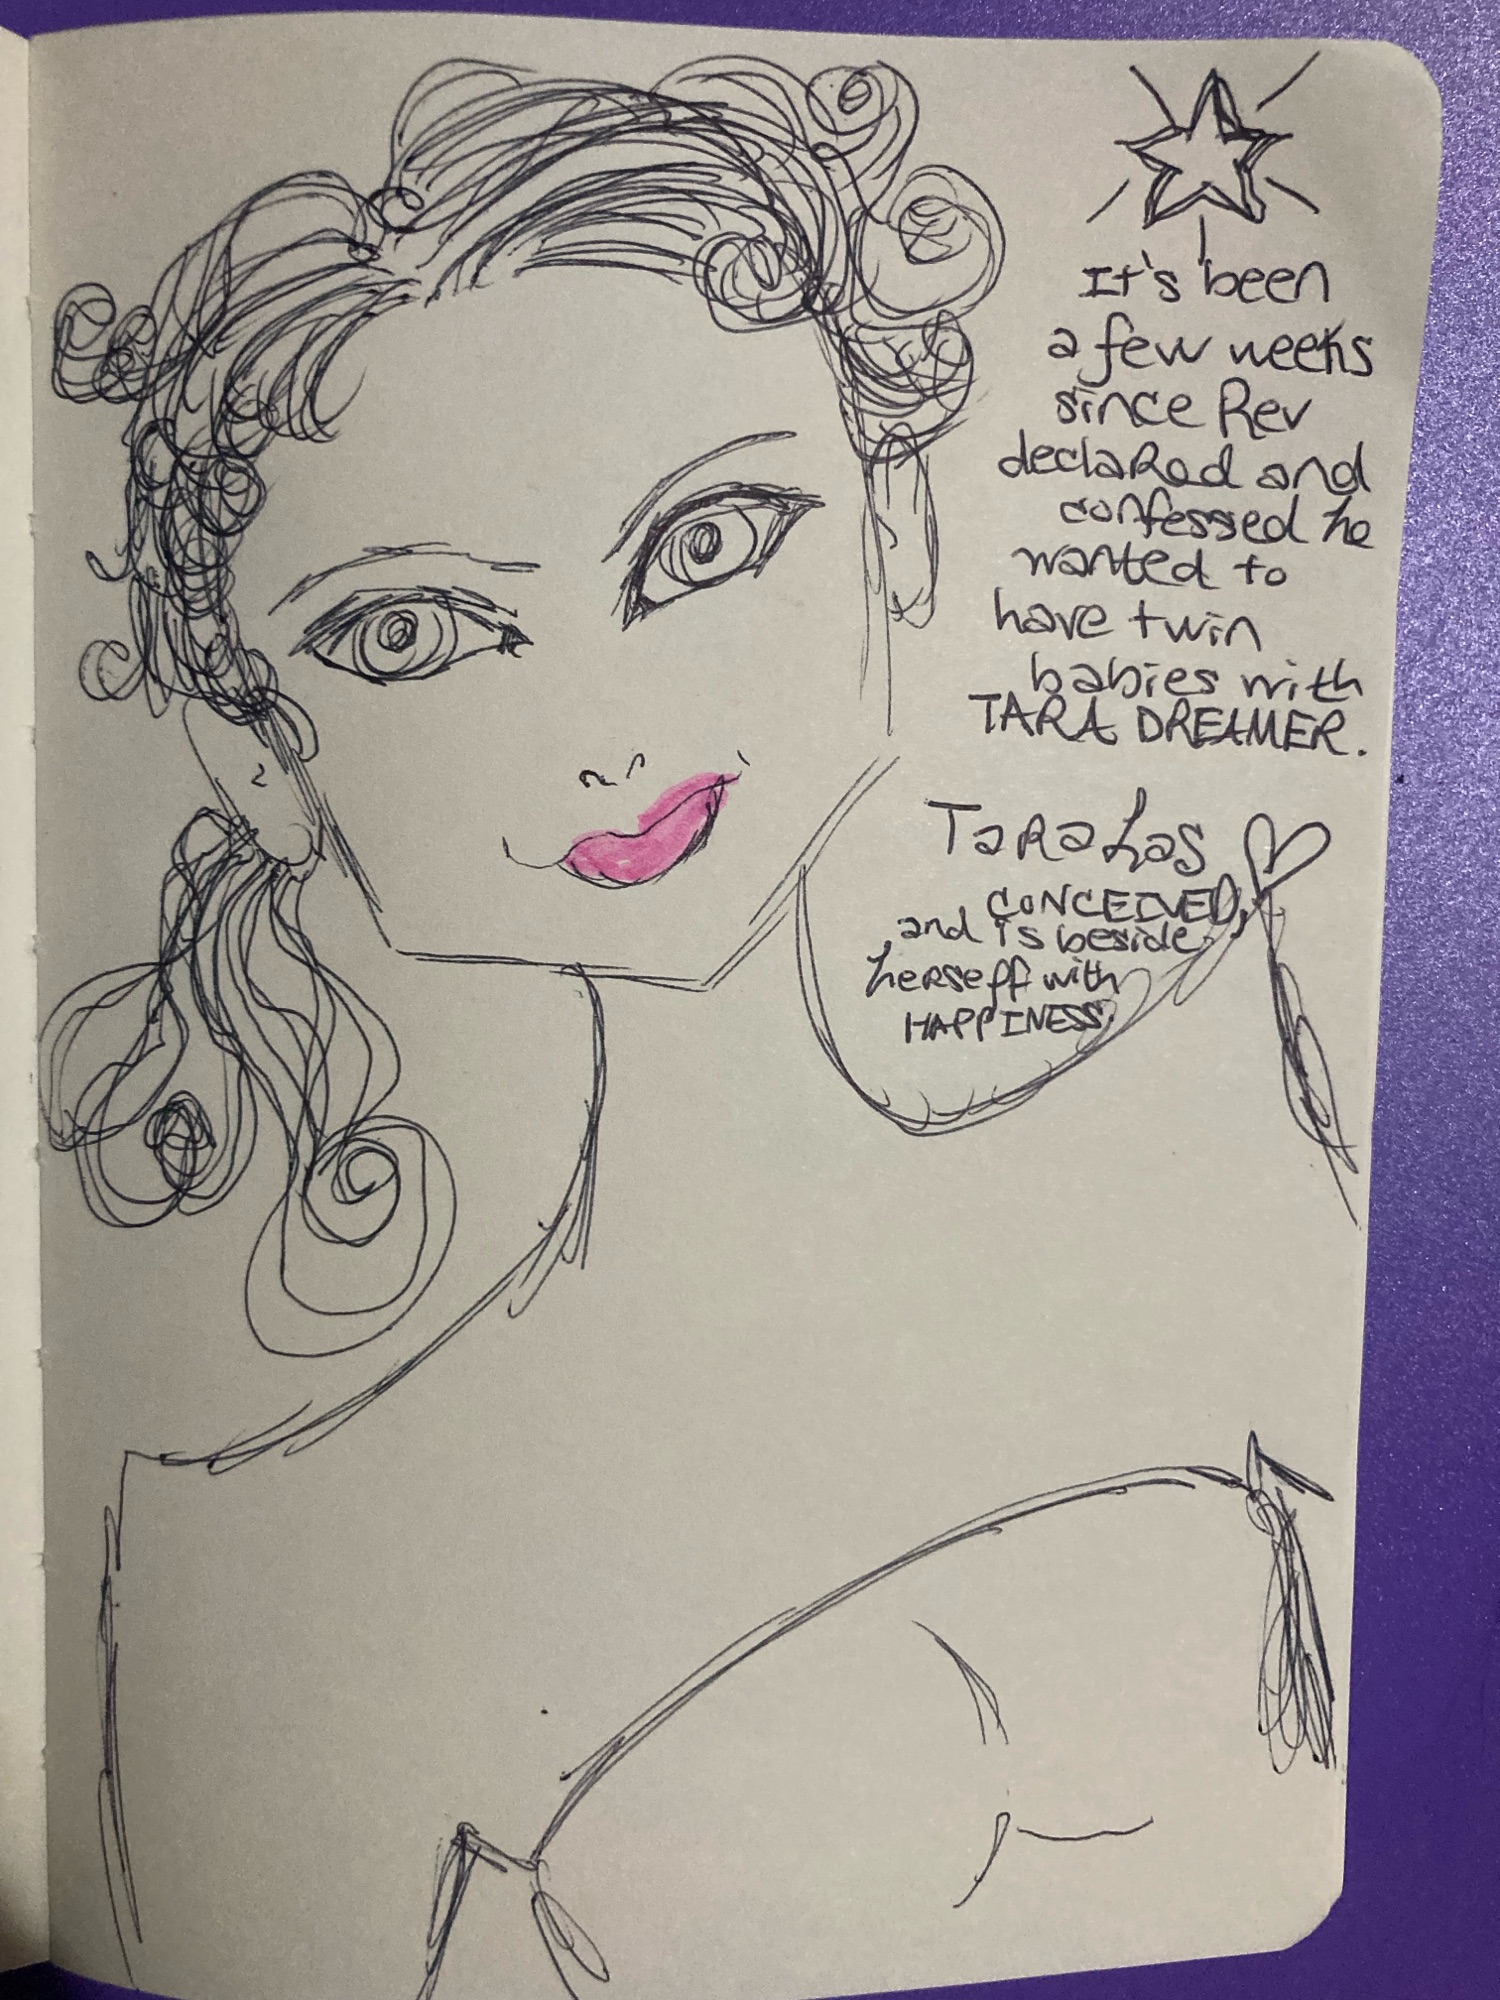 It's been
a few weeks
since Rev
declaRed and
confessed he
wanted to
have twin
babies with
TARA DREAMER.
TaRa has
CONCEIVED,
and is beside
heRself with
HAPPINESS.